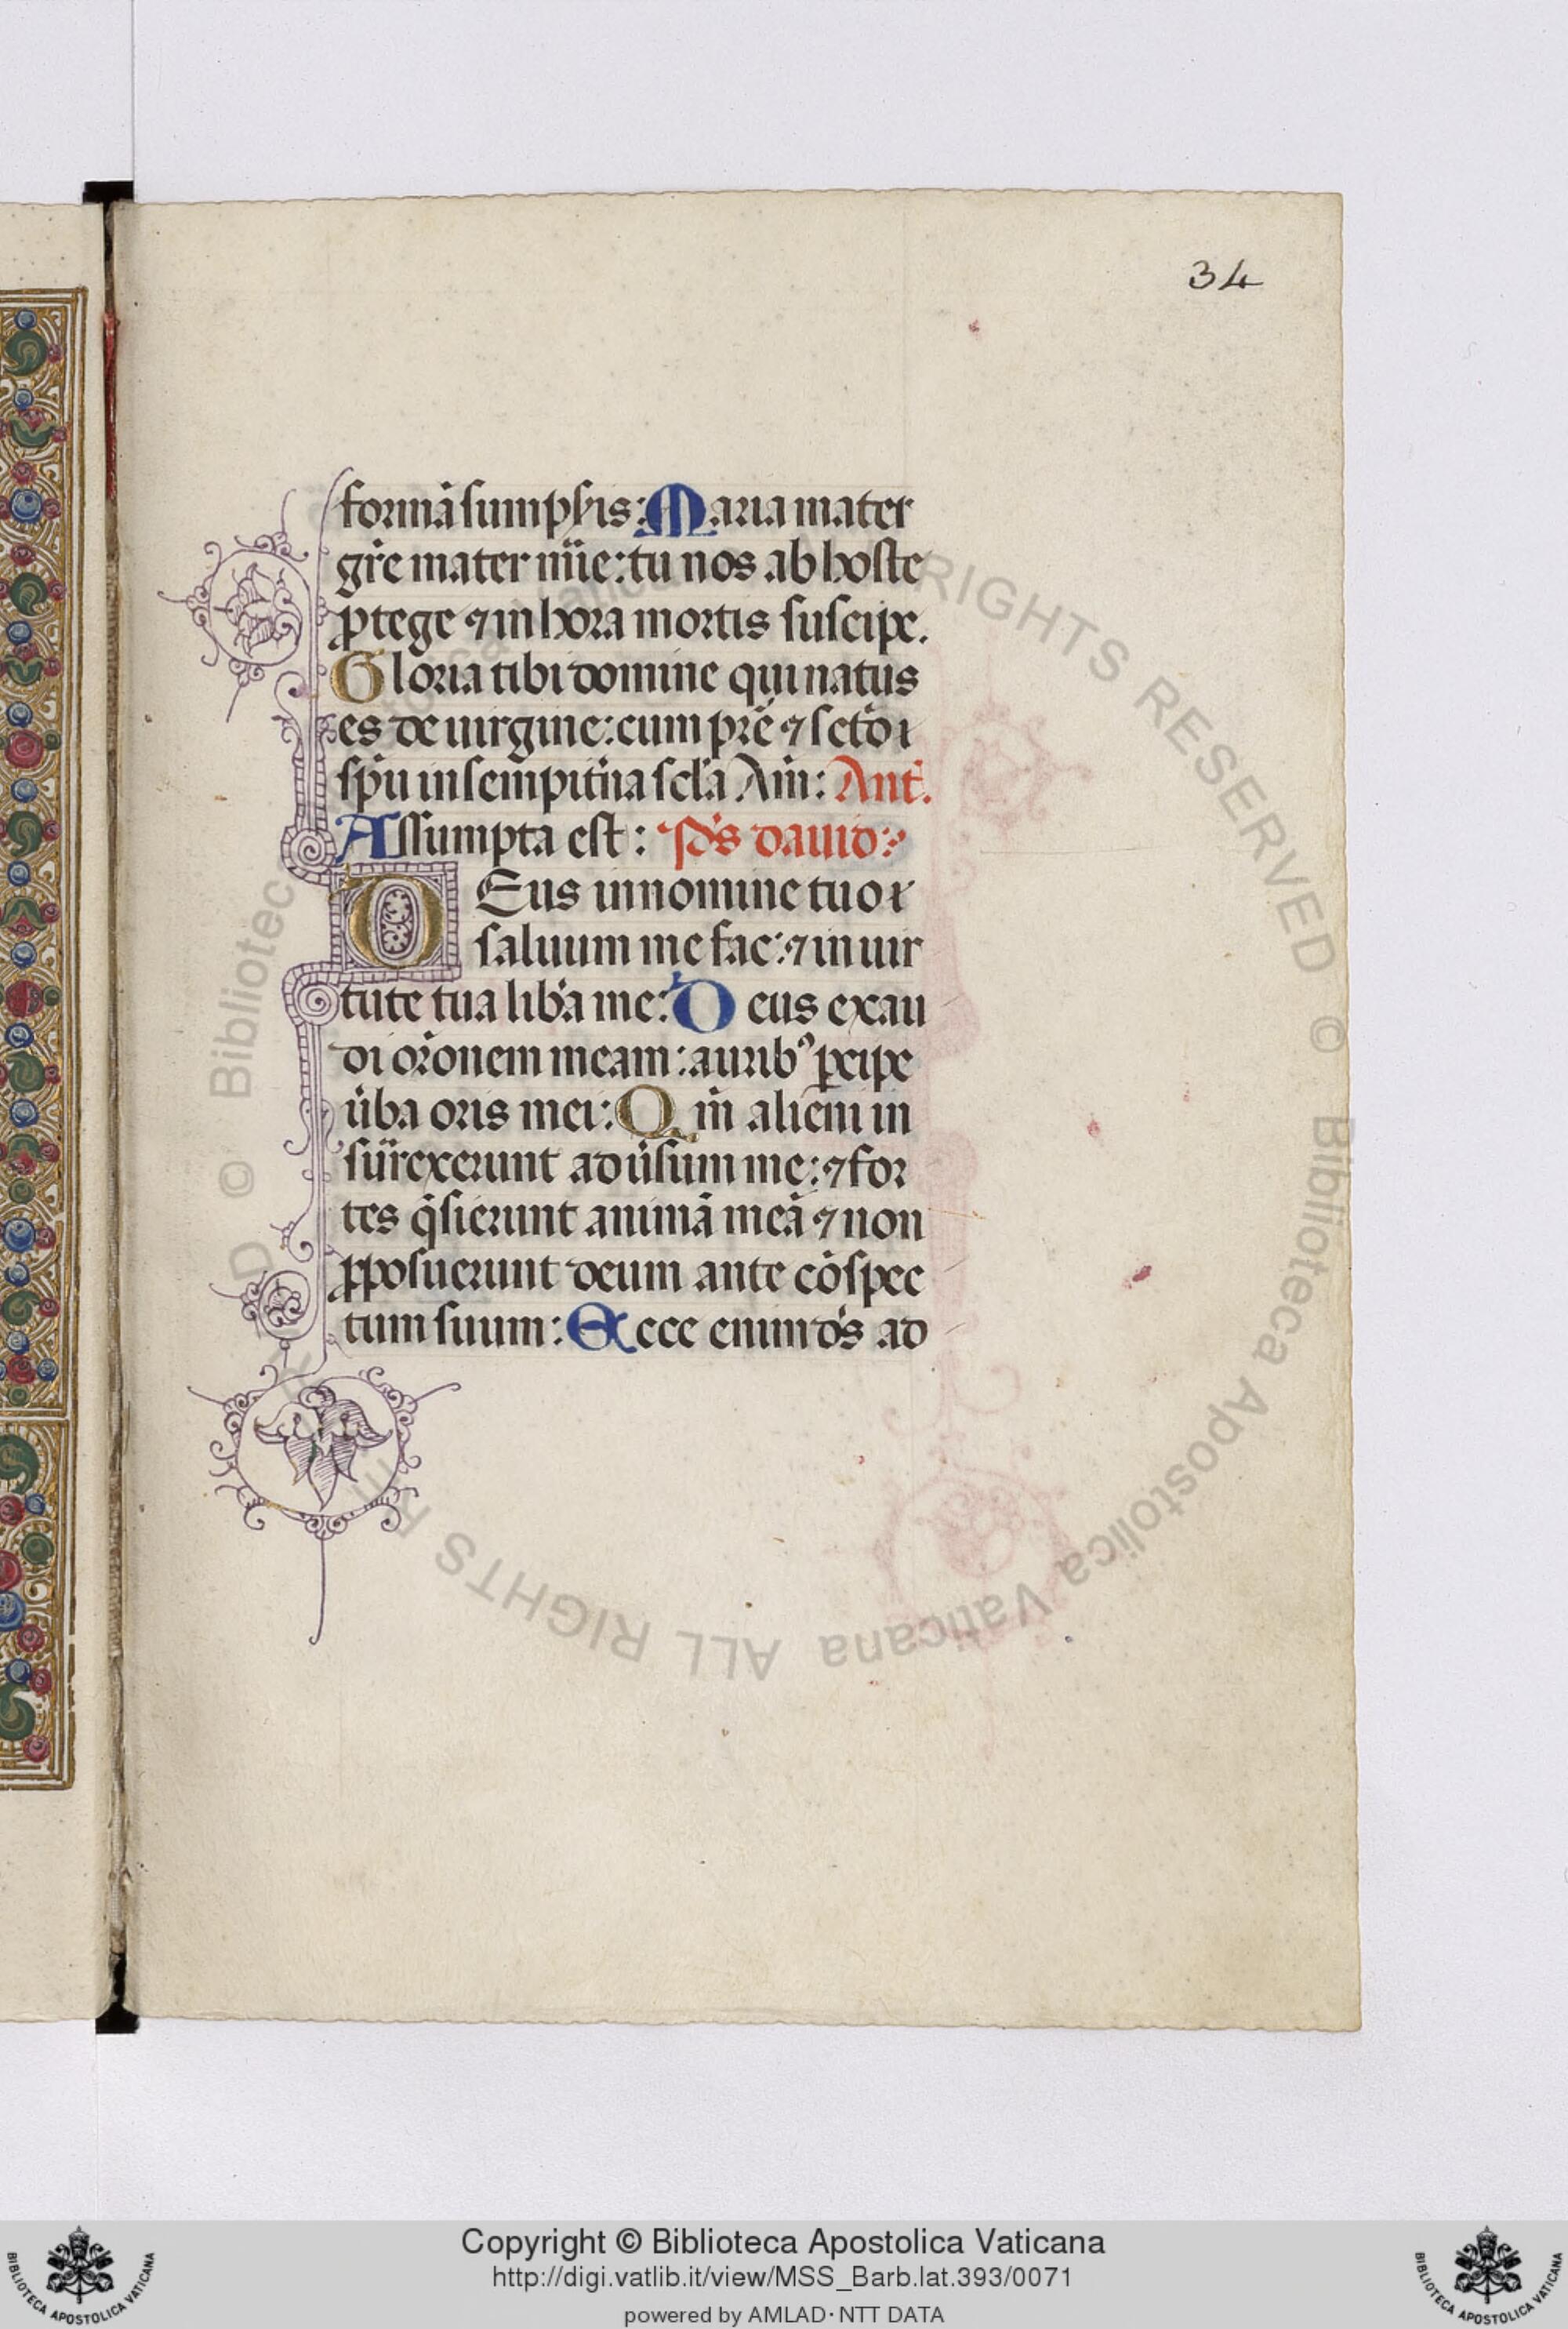 34
formā sumpsis: Maria mater
gr̄e mater mīe: tu nos ab hoste
ꝓtege ⁊ in hora mortis suscipe.
Gloria tibi domine qui natus
es de uirgine: cum pr̄e ⁊ scto
sp̄u in sempit̄na scl̄a Am̄: Ant̄.
Assumpta est: ps̄ dauid:
DEus in nomine tuo
saluum me fac: ⁊ in uir
tute tua lib̄a me: Deus exau
di or̄onem meam: aurib⁹ ꝑcipe
ūba oris mei: Qm̄ alieni in
surrexerunt adūsum me: ⁊ for
tes q̄sierunt animā meā ⁊ non
ꝓposuerunt deum ante cōspec
tum suum: Ecce enim ds̄ ad
© Biblioteca Apostolica Vaticana ALL RIGHTS RESERVED
© Biblioteca Apostolica Vaticana ALL RIGHTS RESERVED
Copyright © Biblioteca Apostolica Vaticana
http://digi.vatlib.it/view/MSS_Barb.lat.393/0071
powered by AMLAD·NTT DATA
BIBLIOTECA APOSTOLICA VATICANA
BIBLIOTECA APOSTOLICA VATICANA